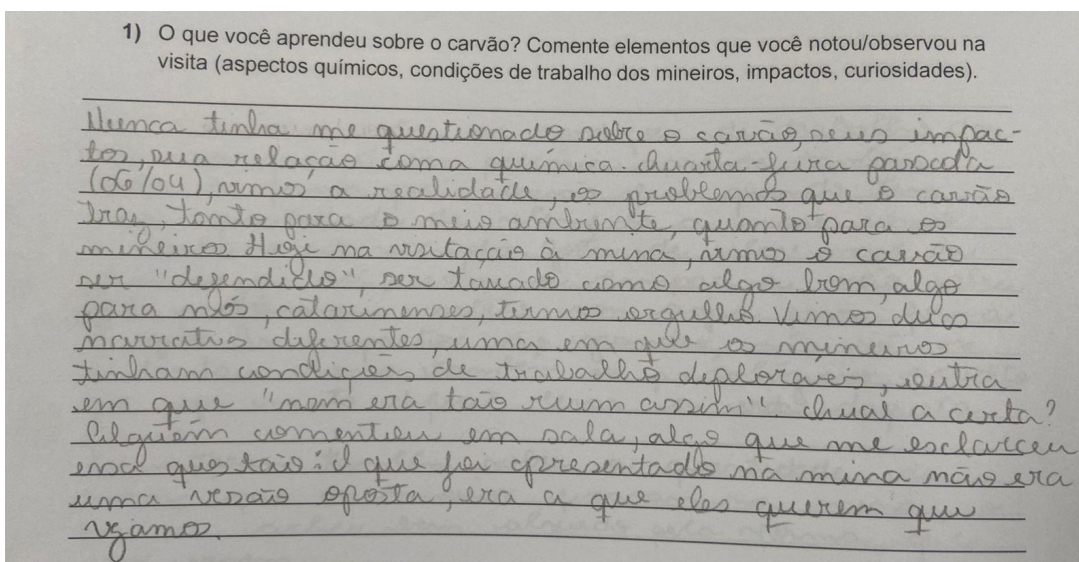 1) O que você aprendeu sobre o carvão? Comente elementos que você notou/observou na
visita (aspectos químicos, condições de trabalho dos mineiros, impactos, curiosidades).
Nunca tinha me questionado sobre o carvão, seus impac-
tos, sua relação com a química. Quarta-feira passada
(06/04), vimos a realidade, os problemas que o carvão
traz, tanto para o meio ambiente, quanto para os
mineiros. Hoje na visitação à mina, vimos o carvão
ser "defendido", ser taxado como algo bom, algo
para nós, catarinenses, termos orgulho. Vimos duas
narrativas diferentes, uma em que os mineiros
tinham condições de trabalho deploráveis, outra
em que "nem era tão ruim assim". Qual a certa?
Alguém comentou em sala, algo que me esclareceu
essa questão: O que foi apresentado na mina não era
uma versão oposta, era a que eles querem que
vejamos.